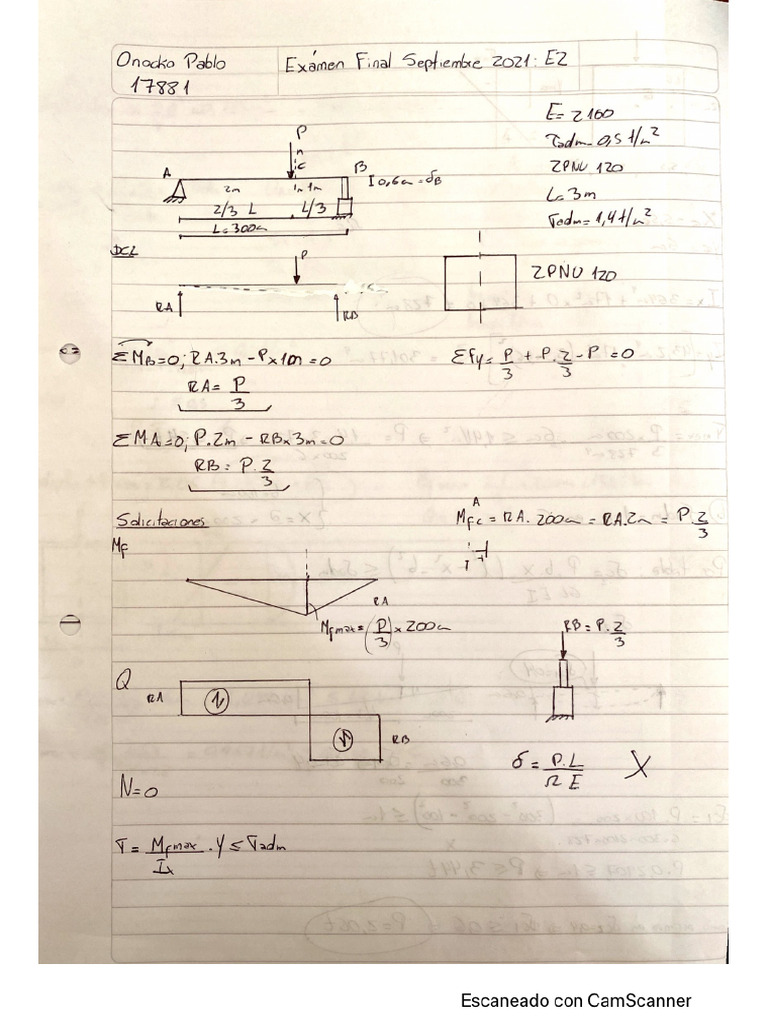 Onocko Pablo
17881
Exámen Final Septiembre 2021: E2
E= 2100
τadm= 0,5 t/cm²
2PNU 120
L= 3m
σadm= 1,4 t/cm²
P
c
A
B
I 0,6cm = δB
2m
1m
2/3 L
L/3
L= 300cm
DCL
P
RA
RB
2PNU 120
ΣMB=0; RA.3m - Px1m = 0
RA= P/3
ΣFy= P/3 + P.2/3 - P = 0
ΣMA=0; P.2m - RBx3m = 0
RB= P.2/3
Solicitaciones
Mfc = RA. 200cm = RA.2m = P.2/3
Mf
RA
Mfmax= (P/3) x 200cm
RB= P.2/3
Q
RA
RB
δ = P.L/Ω E
N=0
σ = Mfmax/Ix . Y ≤ σadm
Escaneado con CamScanner